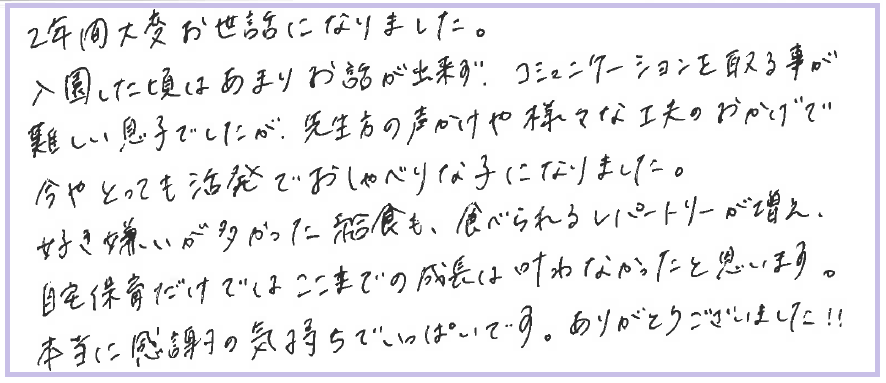 2年間大変お世話になりました。
入園した頃はあまりお話が出来ず、コミュニケーションを取る事が
難しい息子でしたが、先生方の声かけや様々な工夫のおかげで
今やとっても活発でおしゃべりな子になりました。
好き嫌いが多かった給食も、食べられるレパートリーが増え、
自宅保育だけではここまでの成長は叶わなかったと思います。
本当に感謝の気持ちでいっぱいです。ありがとうございました!!